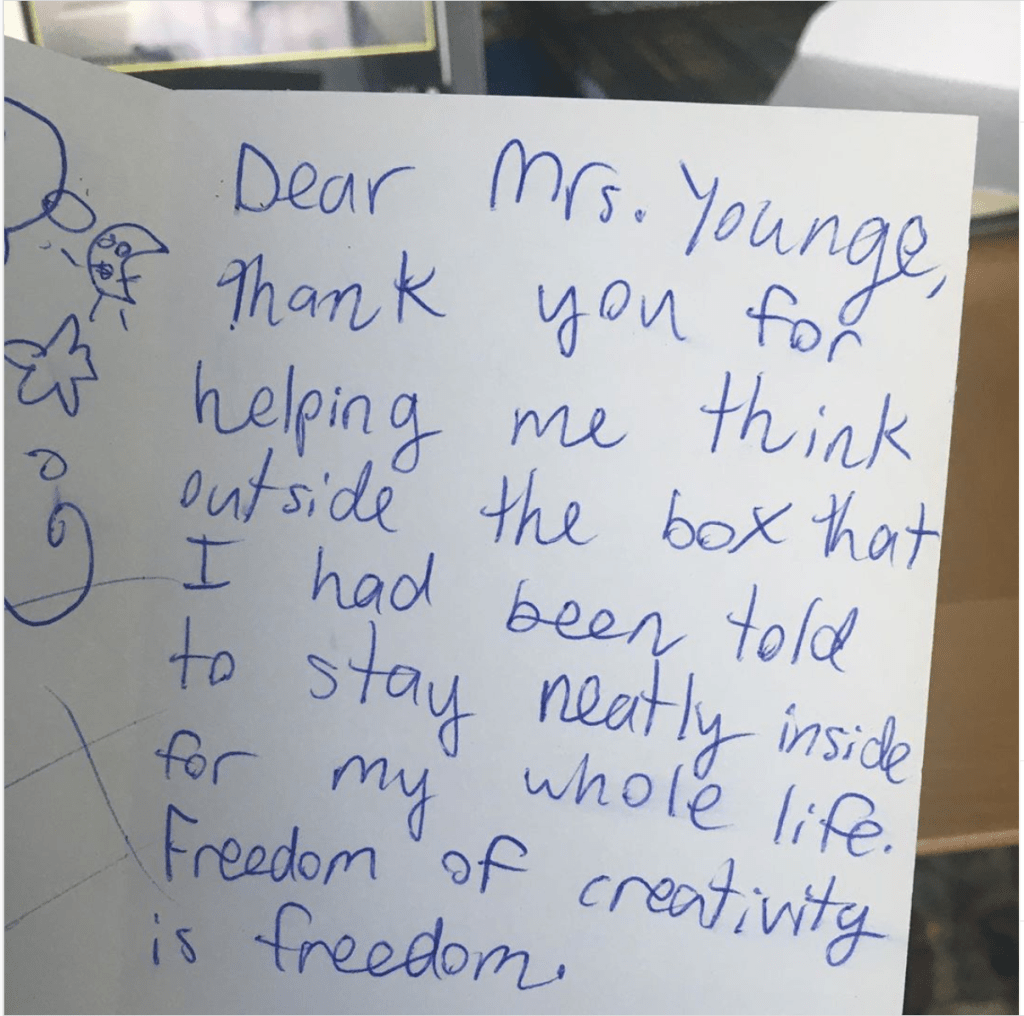 Dear Mrs. Younge,
Thank you for
helping me think
outside the box that
I had been told
to stay neatly inside
for my whole life.
Freedom of creativity
is freedom.